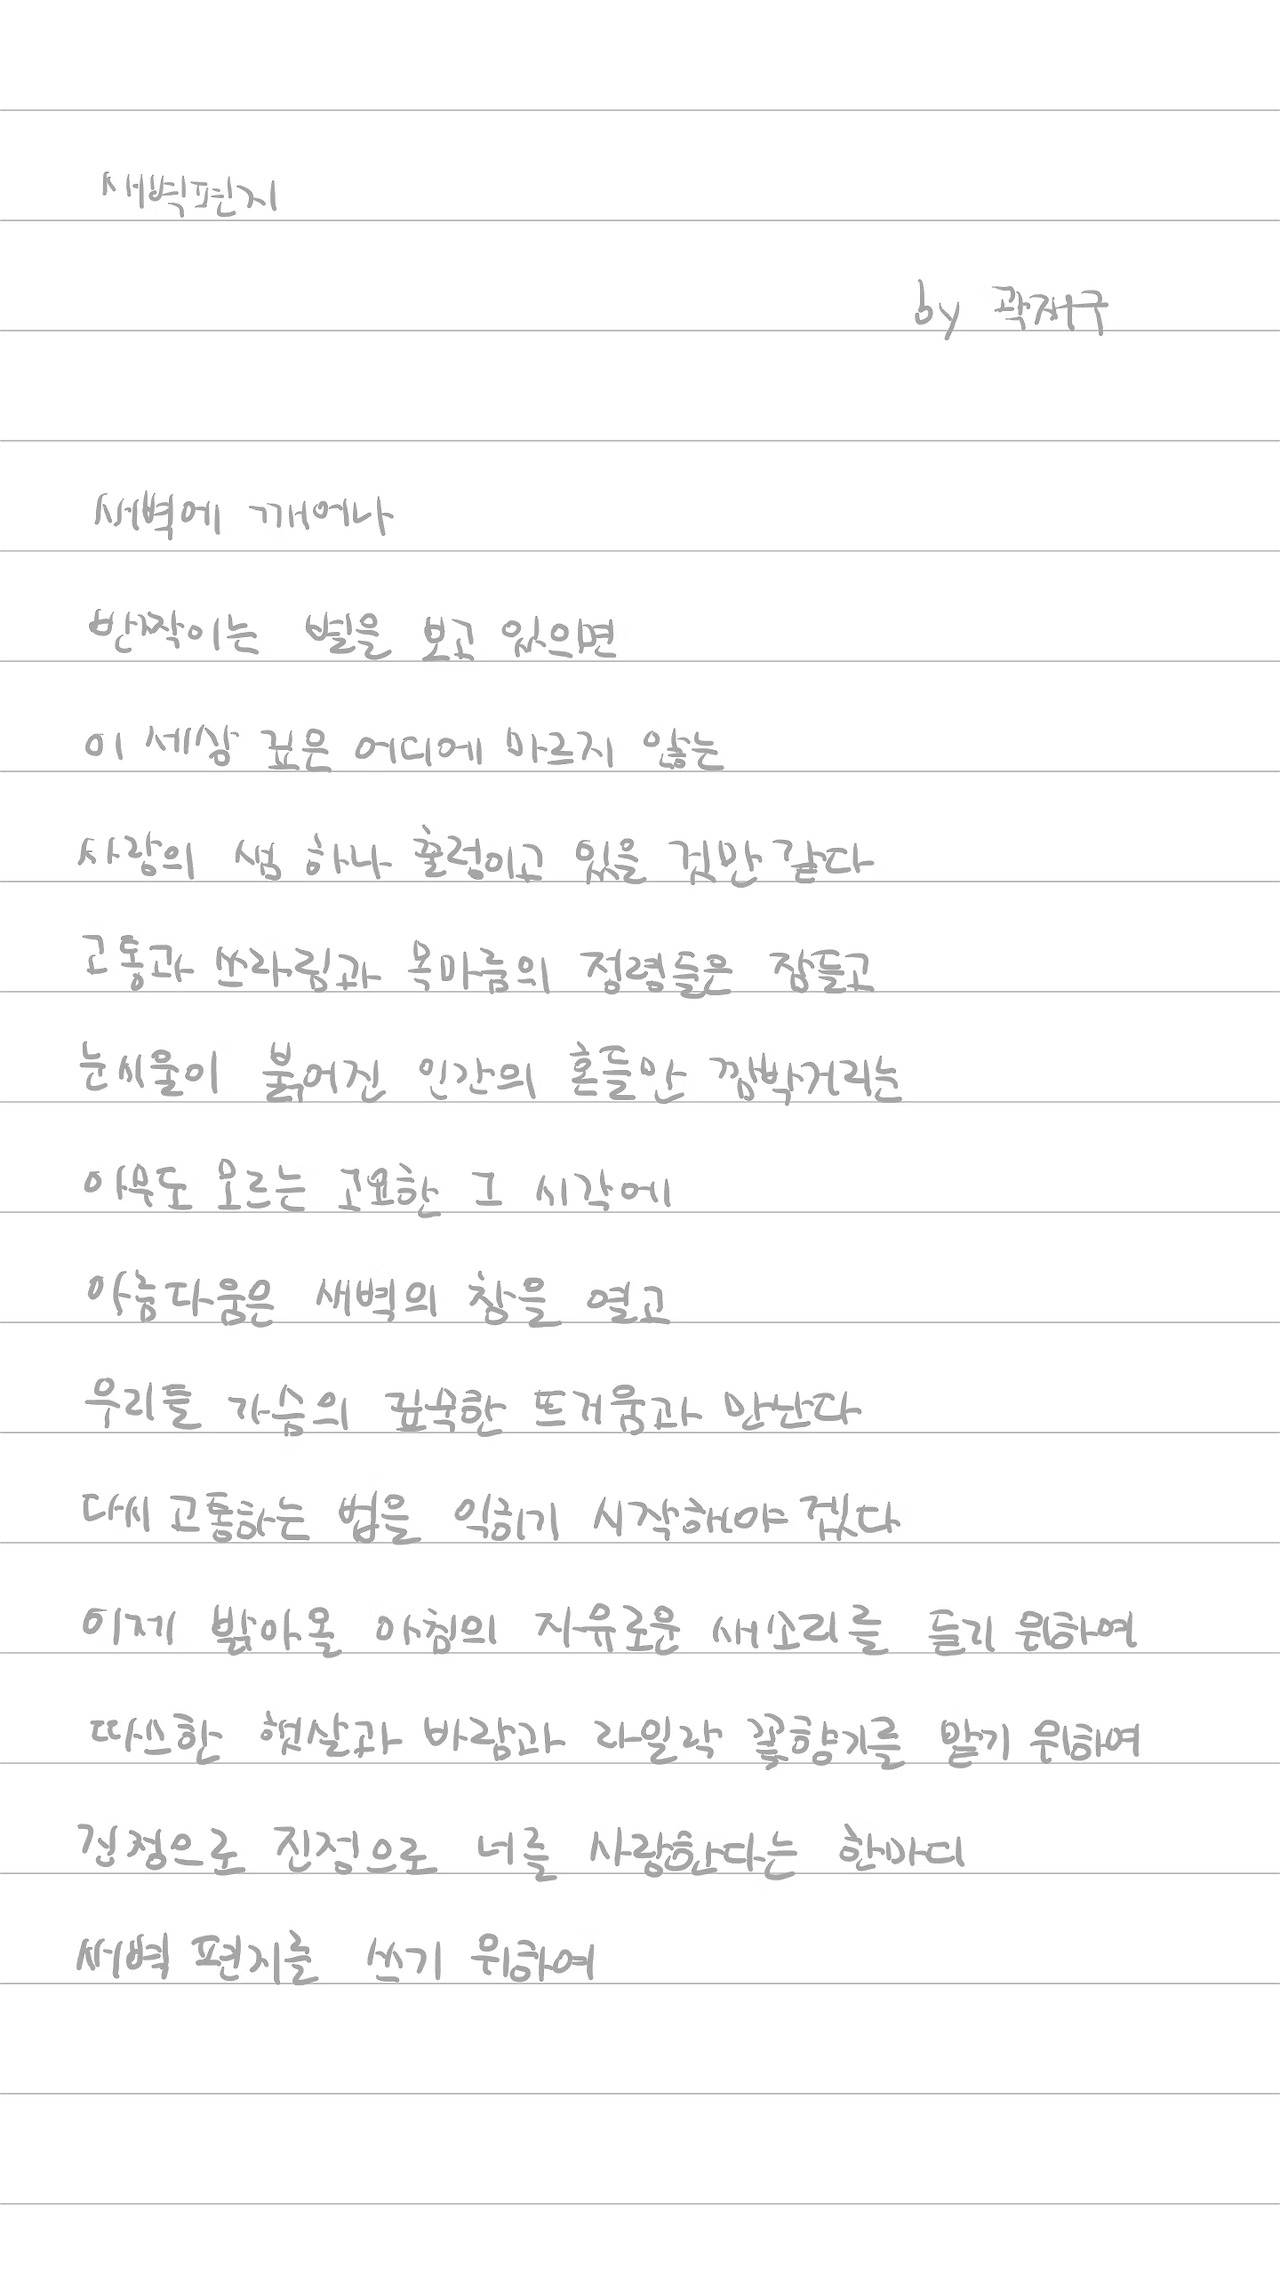 새벽편지
by 곽재구
새벽에 깨어나
반짝이는 별을 보고 있으면
이 세상 깊은 어디에 마르지 않는
사랑의 샘 하나 출렁이고 있을 것만 같다
고통과 쓰라림과 목마름의 정령들은 잠들고
눈시울이 붉어진 인간의 혼들만 깜박거리는
아무도 모르는 고요한 그 시각에
아름다움은 새벽의 창을 열고
우리들 가슴의 깊숙한 뜨거움과 만난다
다시 고통하는 법을 익히기 시작해야겠다
이제 밝아올 아침의 자유로운 새소리를 듣기 위하여
따스한 햇살과 바람과 라일락 꽃향기를 맡기 위하여
진정으로 진정으로 너를 사랑한다는 한마디
새벽 편지를 쓰기 위하여